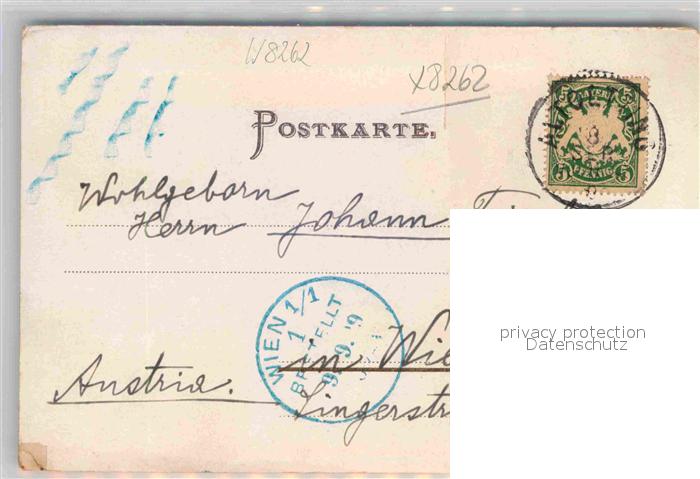 W8262
X8262
POSTKARTE.
BAYERN
5 5
PFENNIG
5 5
Wohlgeborn
Herrn Johann
WIEN 1/1
1
BESTELLT
9. 9.
in Wie
Austria.
Singerstr
privacy protection
Datenschutz